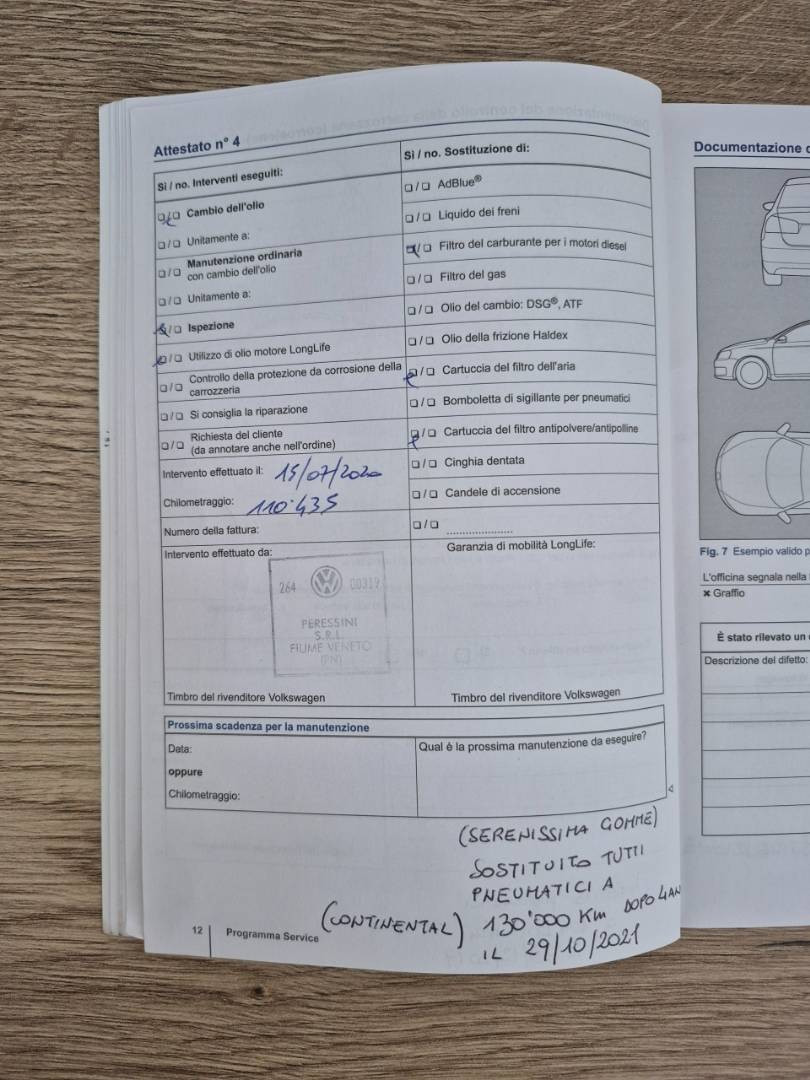 Attestato n° 4
Sì / no. Interventi eseguiti:
❏/❏ Cambio dell'olio
❏/❏ Unitamente a:
❏/❏ Manutenzione ordinaria
con cambio dell'olio
❏/❏ Unitamente a:
❏/❏ Ispezione
❏/❏ Utilizzo di olio motore LongLife
❏/❏ Controllo della protezione da corrosione della
carrozzeria
❏/❏ Si consiglia la riparazione
❏/❏ Richiesta del cliente
(da annotare anche nell'ordine)
Intervento effettuato il: 15/07/2020
Chilometraggio: 110.435
Numero della fattura:
Intervento effettuato da:
264 VW 00319
PERESSINI
S.R.L.
FIUME VENETO
(PN)
Timbro del rivenditore Volkswagen
Sì / no. Sostituzione di:
❏/❏ AdBlue®
❏/❏ Liquido dei freni
❏/❏ Filtro del carburante per i motori diesel
❏/❏ Filtro del gas
❏/❏ Olio del cambio: DSG®, ATF
❏/❏ Olio della frizione Haldex
❏/❏ Cartuccia del filtro dell'aria
❏/❏ Bomboletta di sigillante per pneumatici
❏/❏ Cartuccia del filtro antipolvere/antipolline
❏/❏ Cinghia dentata
❏/❏ Candele di accensione
❏/❏ ....................
Garanzia di mobilità LongLife:
Timbro del rivenditore Volkswagen
Prossima scadenza per la manutenzione
Data:
oppure
Chilometraggio:
Qual è la prossima manutenzione da eseguire?
(SERENISSIMA GOMME)
SOSTITUITO TUTTI
PNEUMATICI A
(CONTINENTAL) 130'000 Km DOPO 4 AN
IL 29/10/2021
12 Programma Service
Documentazione
Fig. 7 Esempio valido p
L'officina segnala nella
✖ Graffio
È stato rilevato un
Descrizione del difetto: